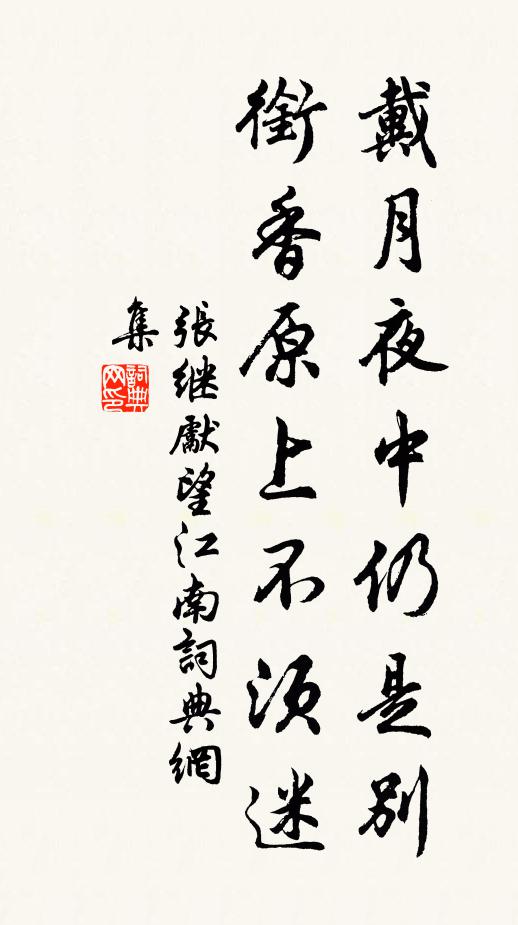 戴月夜中仍是別
銜香原上不須迷
張继獻望江南詞典網
集
詞典网印